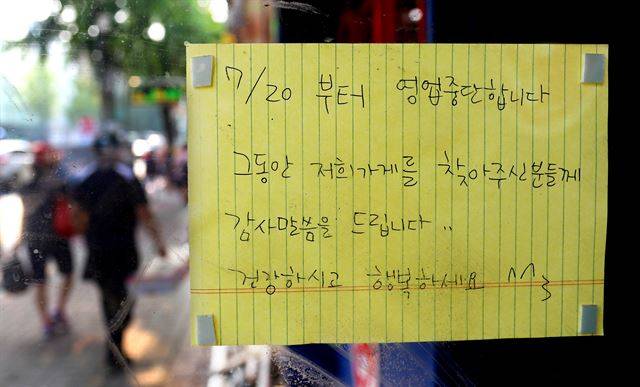 7/20 부터 영업중단합니다
그동안 저희가게를 찾아주신분들께
감사말씀을 드립니다..
건강하시고 행복하세요 ^^